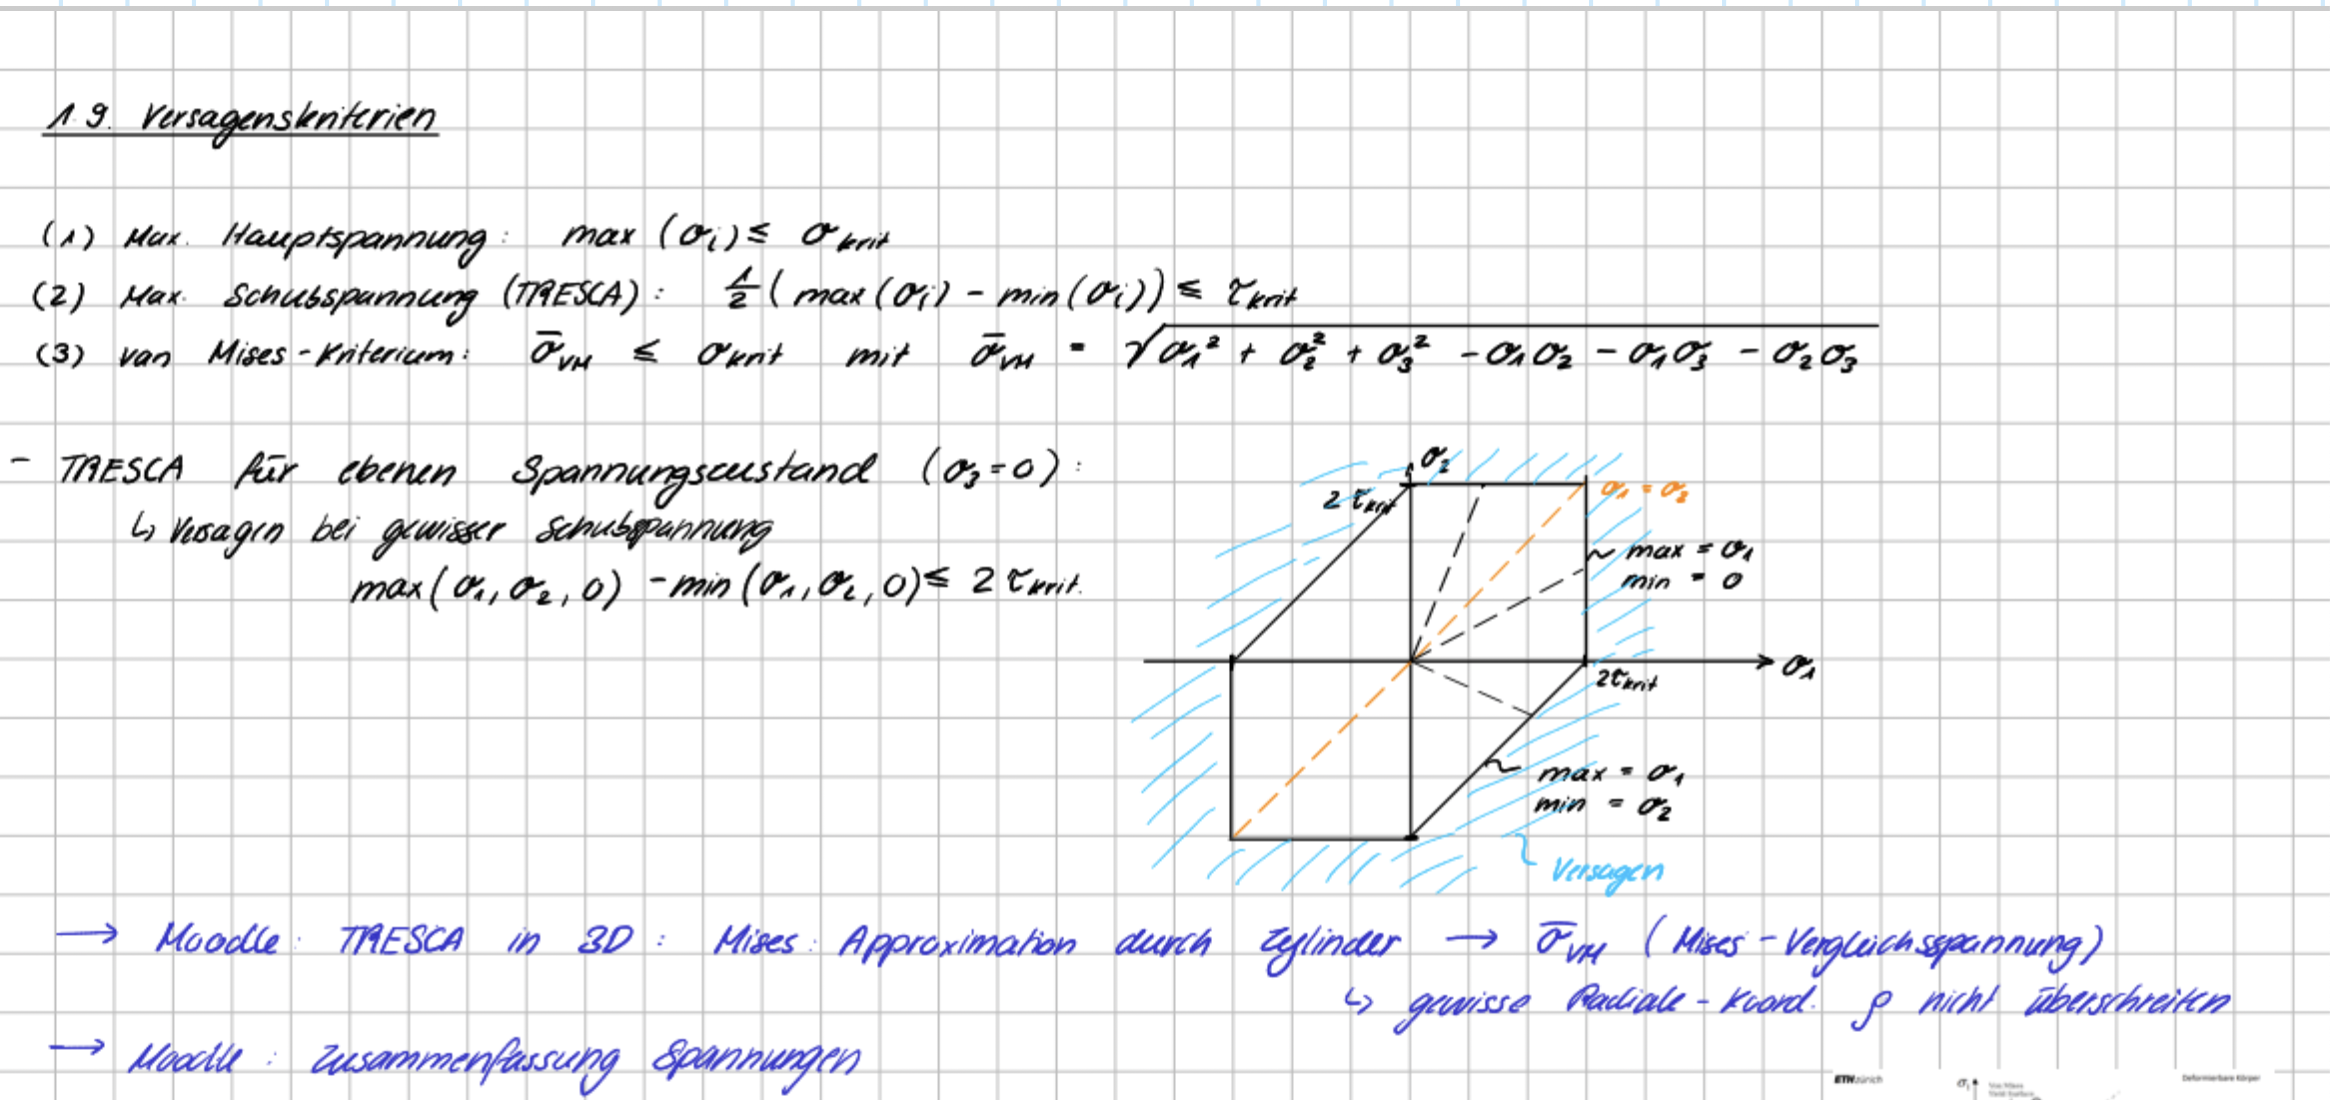 1.9. Versagenskriterien
(1) Max. Hauptspannung: max (σi) ≤ σkrit
(2) Max. Schubspannung (TRESCA): 1/2 (max(σi) - min(σi)) ≤ τkrit
(3) van Mises-Kriterium: σ̄VM ≤ σkrit mit σ̄VM = √(σ1² + σ2² + σ3² - σ1σ2 - σ1σ3 - σ2σ3)
- TRESCA für ebenen Spannungszustand (σ3=0):
↳ Versagen bei gewisser Schubspannung
max(σ1, σ2, 0) - min(σ1, σ2, 0) ≤ 2 τkrit.
σ2
2 τkrit
σ1 = σ2
~ max = σ1
min = 0
σ1
2τkrit
~ max = σ1
min = σ2
Versagen
→ Moodle: TRESCA in 3D: Mises: Approximation durch Zylinder → σ̄VM (Mises-Vergleichsspannung)
↳ gewisse Radiale-Koord. ρ nicht überschreiten
→ Moodle: Zusammenfassung Spannungen
ETH zürich
σ1
Von Mises
Yield Surface
Deformierbare Körper